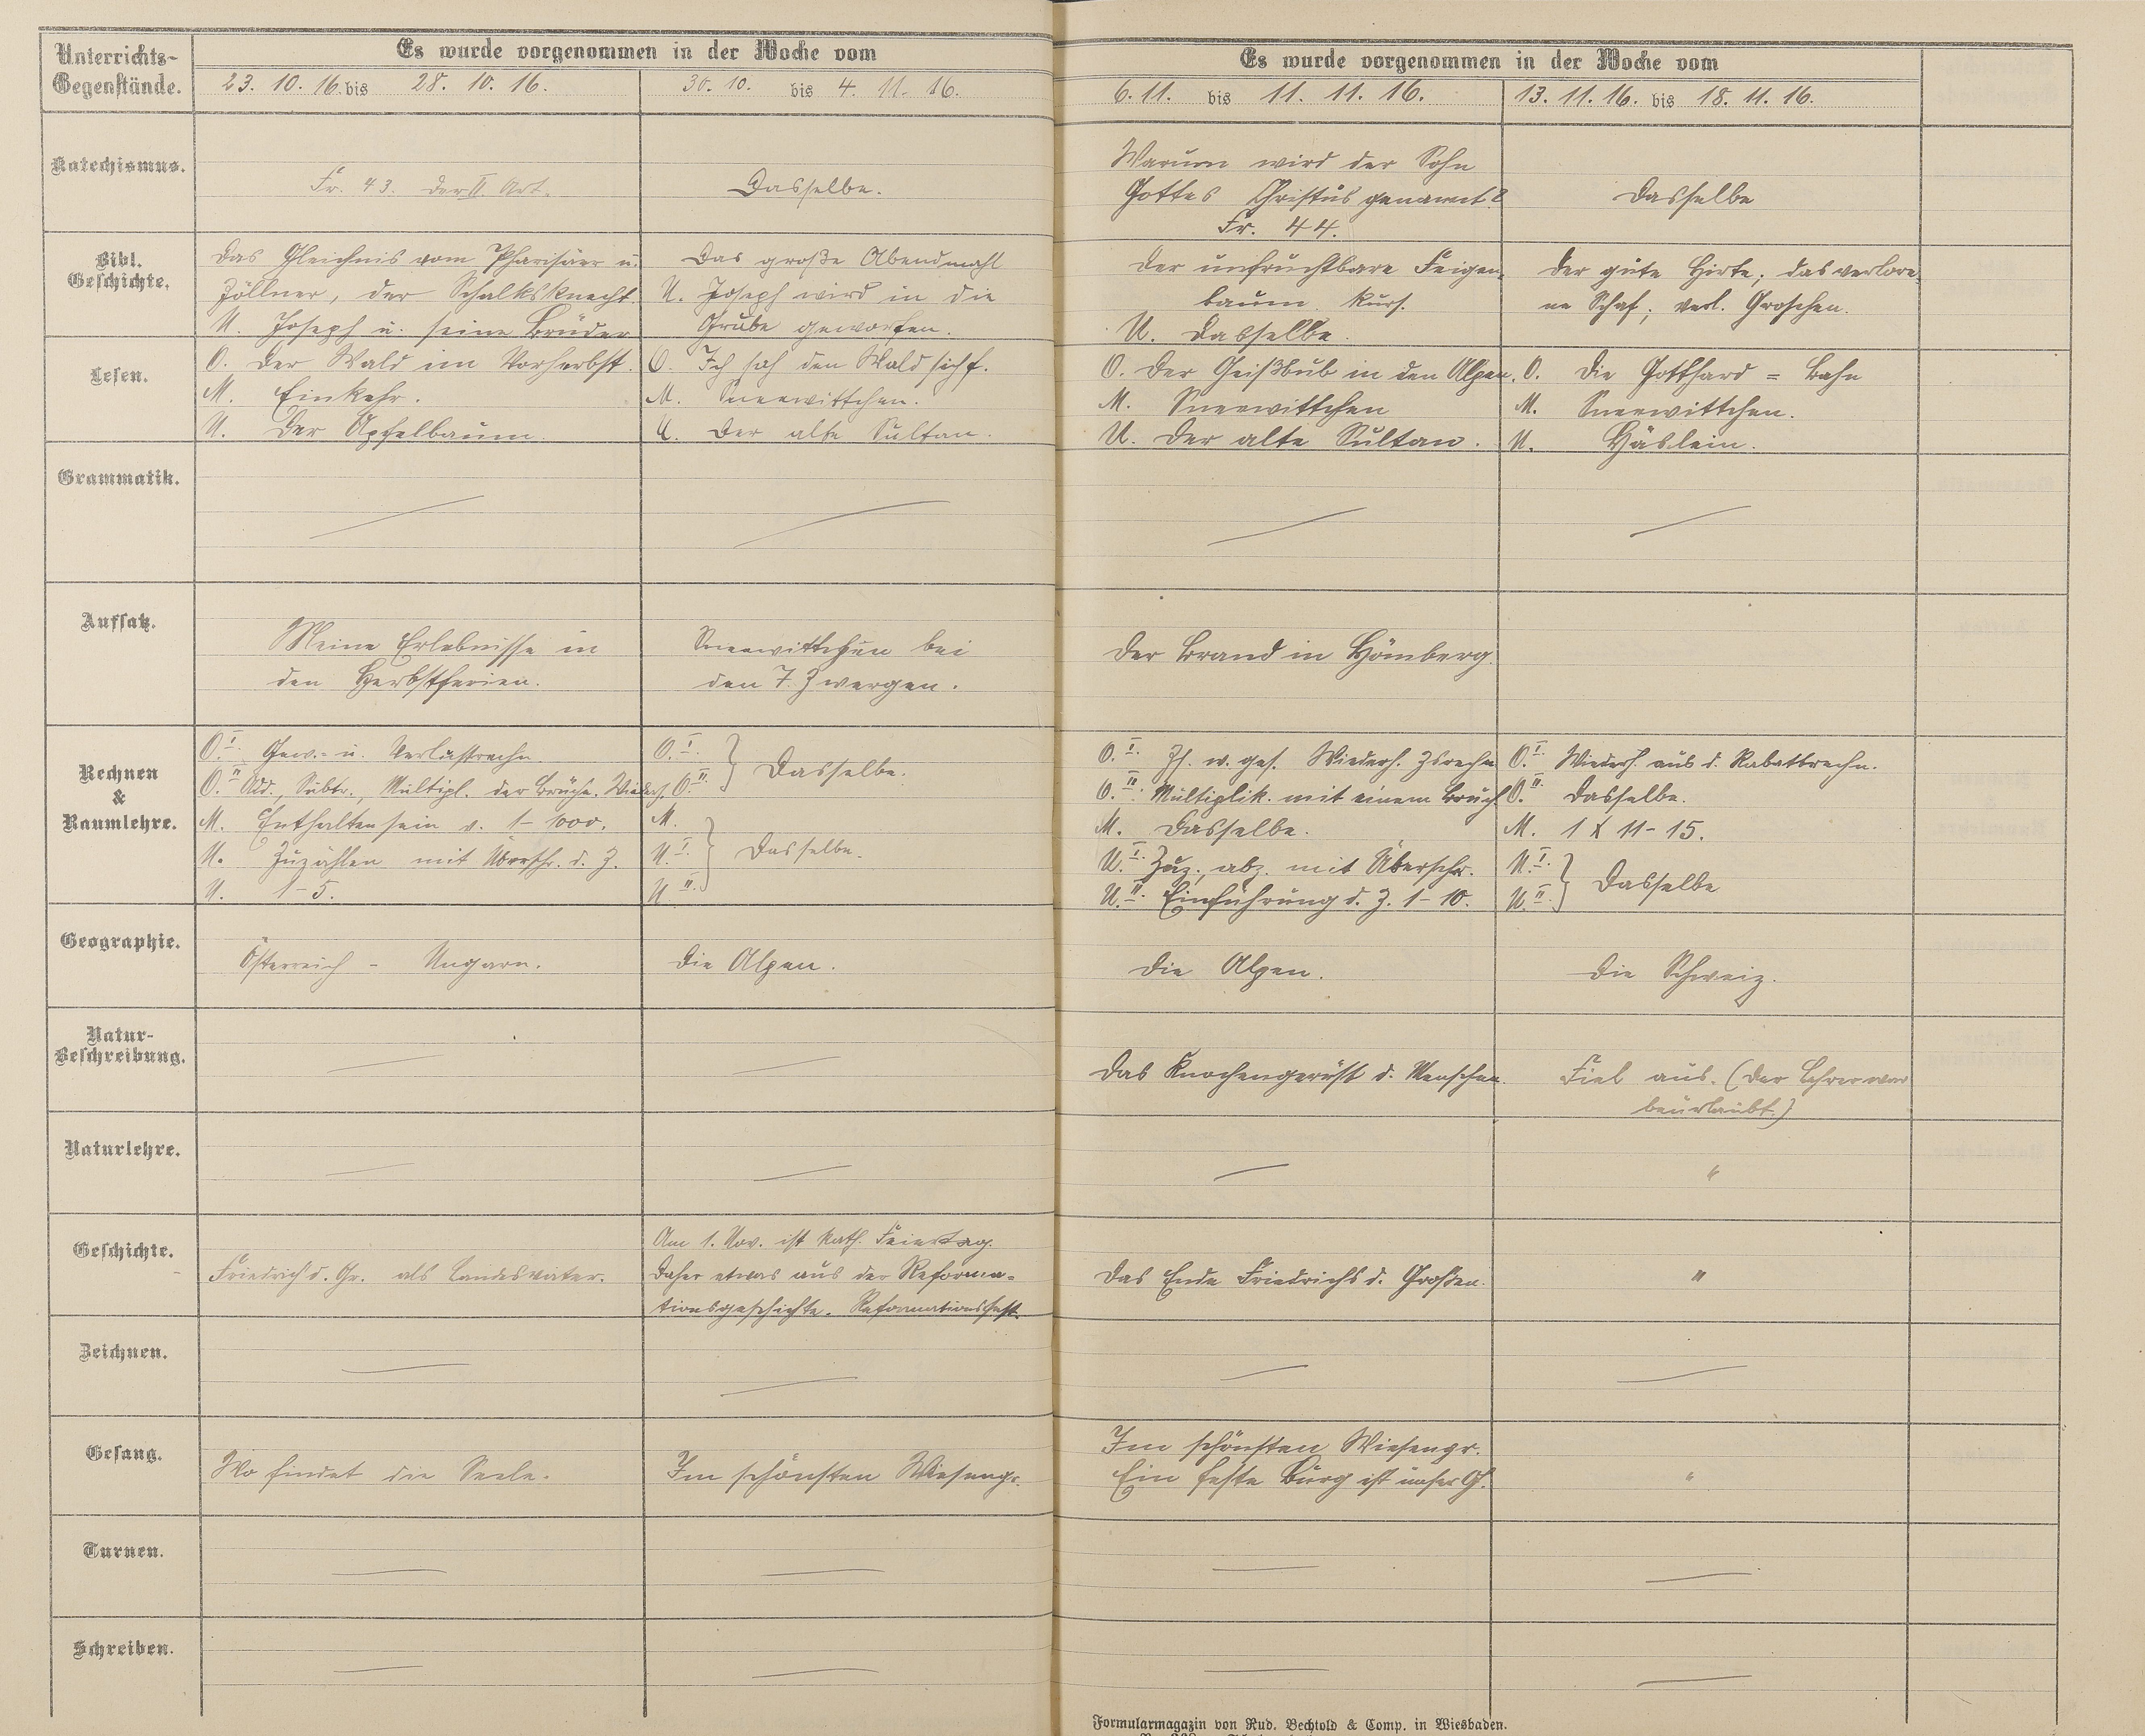 Unterrichts-
Gegenstände.
Es wurde vorgenommen in der Woche vom
23. 10. 16. bis 28. 10. 16.
30. 10. bis 4. 11. 16.
Es wurde vorgenommen in der Woche vom
6. 11. bis 11. 11. 16.
13. 11. 16. bis 18. 11. 16.
Katechismus.
Fr. 43. der II. Art.
Dasselbe.
Warum wird der Sohn
Gottes Christus genannt?
Fr. 44.
Dasselbe
Bibl.
Geschichte.
Das Gleichnis vom Pharisäer u.
Zöllner, der Schalksknecht.
U. Joseph u. seine Brüder
Das große Abendmahl
U. Joseph wird in die
Grube geworfen.
Der unfruchtbare Feigen-
baum kurs.
U. Dasselbe.
Der gute Hirte; das verlore-
ne Schaf; verl. Groschen.
Lesen.
O. Der Wald im Vorherbst.
M. Einkehr.
U. Der Apfelbaum.
O. Ich sah den Wald sich f.
M. Sneewittchen.
U. Der alte Sultan.
O. Der Geißbub in den Alpen.
M. Sneewittchen
U. Der alte Sultan.
O. Die Gotthard = Bahn
M. Sneewittchen.
U. Häslein.
Grammatik.
Aufsatz.
Meine Erlebnisse in
den Herbstferien.
Sneewittchen bei
den 7. Zwergen.
Der Brand in Hömberg.
Rechnen
&
Raumlehre.
O. I. Gew.- u. Verlustrechn.
O. II Add., Subtr., Multipl. der Brüche. Wiederh.
M. Enthaltensein v. 1-1000.
U. Zuzählen mit Überschr. d. Z.
U. 1-5.
O. I.
O. II. } Dasselbe.
M.
U. I. } Dasselbe.
U. II.
O. I. Zs. w. ges. Wiederh. Zsrechn
O. II. Multiplik. mit einem Bruch
M. Dasselbe.
U. I. Zuz., abz. mit Überschr.
U. II. Einführung d. Z. 1-10.
O. I. Wiederh. aus d. Rabattrechn.
O. II. Dasselbe.
M. 1 x 11-15.
U. I.
U. II. } Dasselbe
Geographie.
Österreich - Ungarn.
Die Alpen.
Die Alpen.
Die Schweiz.
Natur-
Beschreibung.
Das Knochengerüst d. Menschen.
Fiel aus. (Der Lehrer war
beurlaubt.)
Naturlehre.
"
Geschichte.
Friedrich d. Gr. als Landesvater.
Am 1. Nov. ist kath. Feiertag.
Daher etwas aus der Reforma-
tionsgeschichte. Reformationsfest.
Das Ende Friedrichs d. Großen.
"
Zeichnen.
Gesang.
Wo findet die Seele.
Im schönsten Wiesengr.
Im schönsten Wiesengr.
Ein feste Burg ist unser G.
"
Turnen.
Schreiben.
Formularmagazin von Rud. Bechtold & Comp. in Wiesbaden.